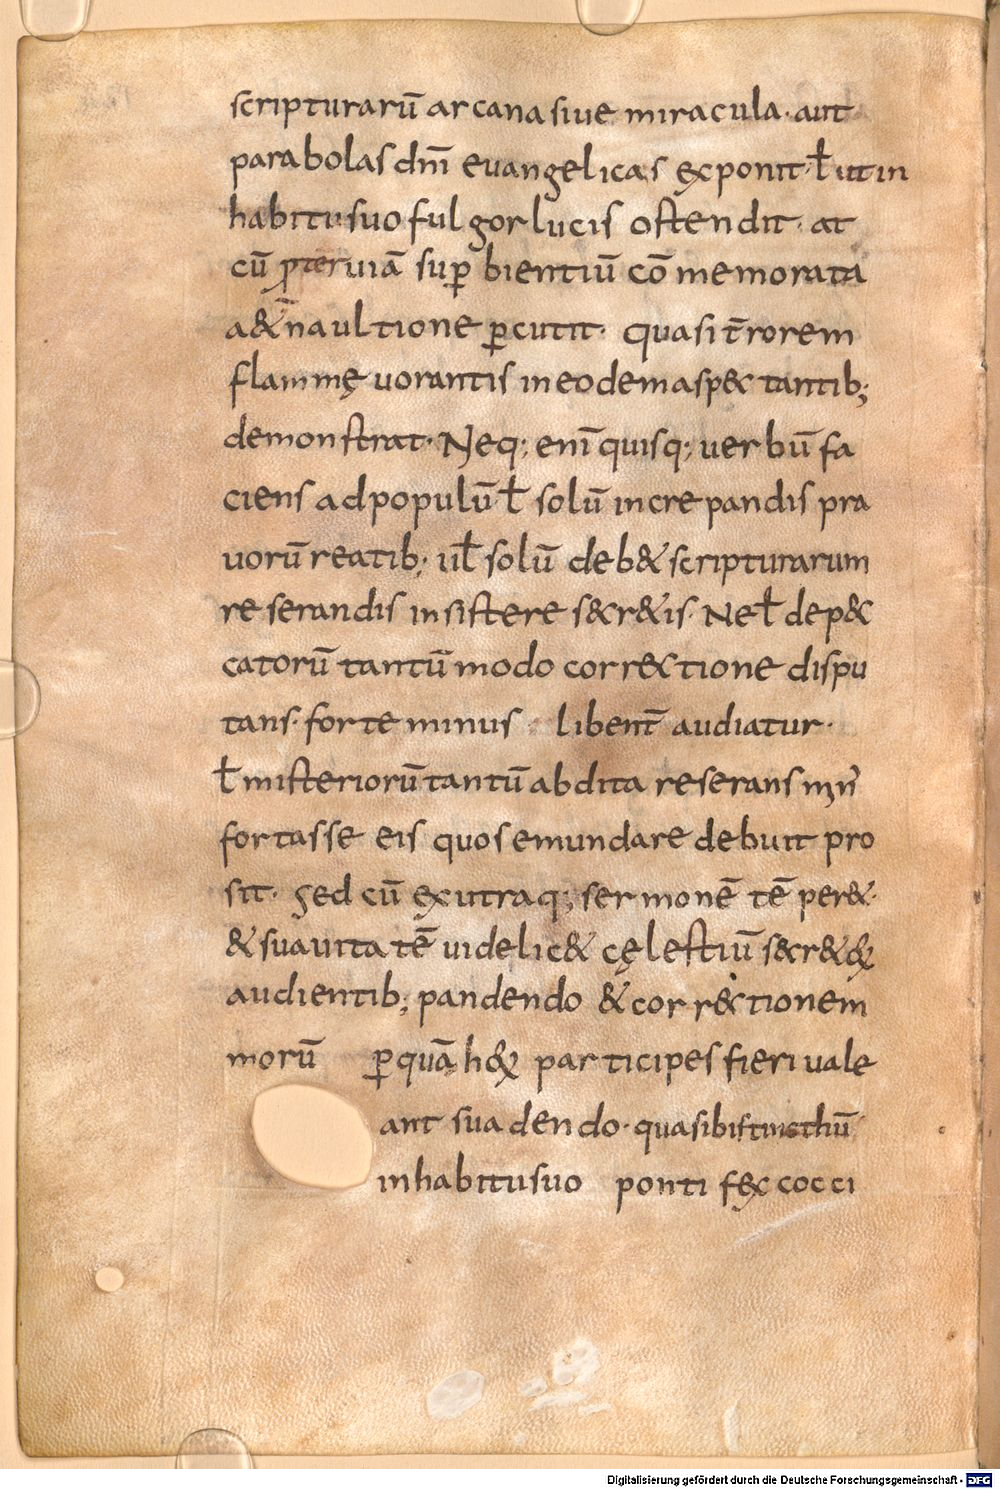 scripturarū arcana siue miracula · aut
parabolas dnī evangelicas exponit · ł ut in
habitu suo fulgor lucis ostendit · at
cū ꝓteruiā suꝑbientiū cōmemorata
a&̄na ultione ꝑcutit · quasi t̄rorem
flammę uorantis in eodem aspectantib;
demonstrat · Neq; enī quisq; uerbū fa
ciens ad populū ł solū increpandis pra
uorū reatib; ul̄ solū deb& scripturarum
reserandis insistere secr&is · Ne ł de pec
catorū tantū modo correctione dispu
tans · forte minus libent̄ audiatur ·
ł misteriorū tantū abdita reserans min̄
fortasse eis quos emundare debuit pro
sit · Sed cū ex utraq; sermonē tēper& ·
& suauitatē uidelic& cęlestiū secr&orum
audientib; pandendo & correctionem
morū ꝑ quā horum participes fieri uale
ant suadendo · quasi bistincthū
in habitu suo pontifex cocci
Digitalisierung gefördert durch die Deutsche Forschungsgemeinschaft - DFG